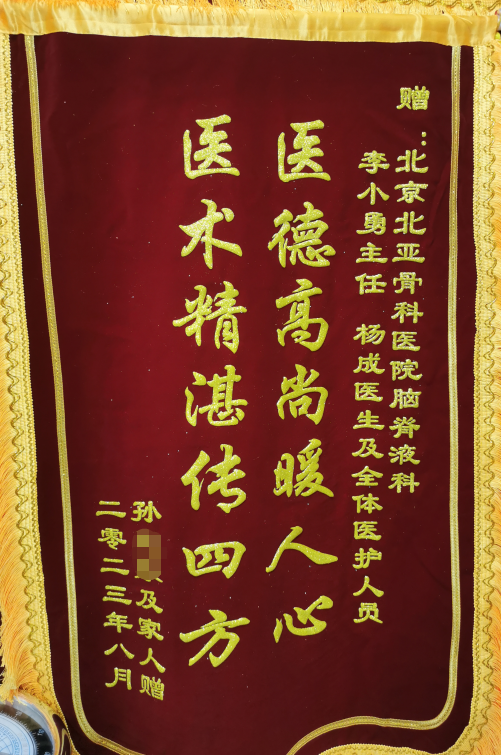 赠：北京北亚骨科医院脑脊液科
李小勇主任 杨成医生及全体医护人员
医德高尚暖人心
医术精湛传四方
孙及家人赠
二零二三年八月